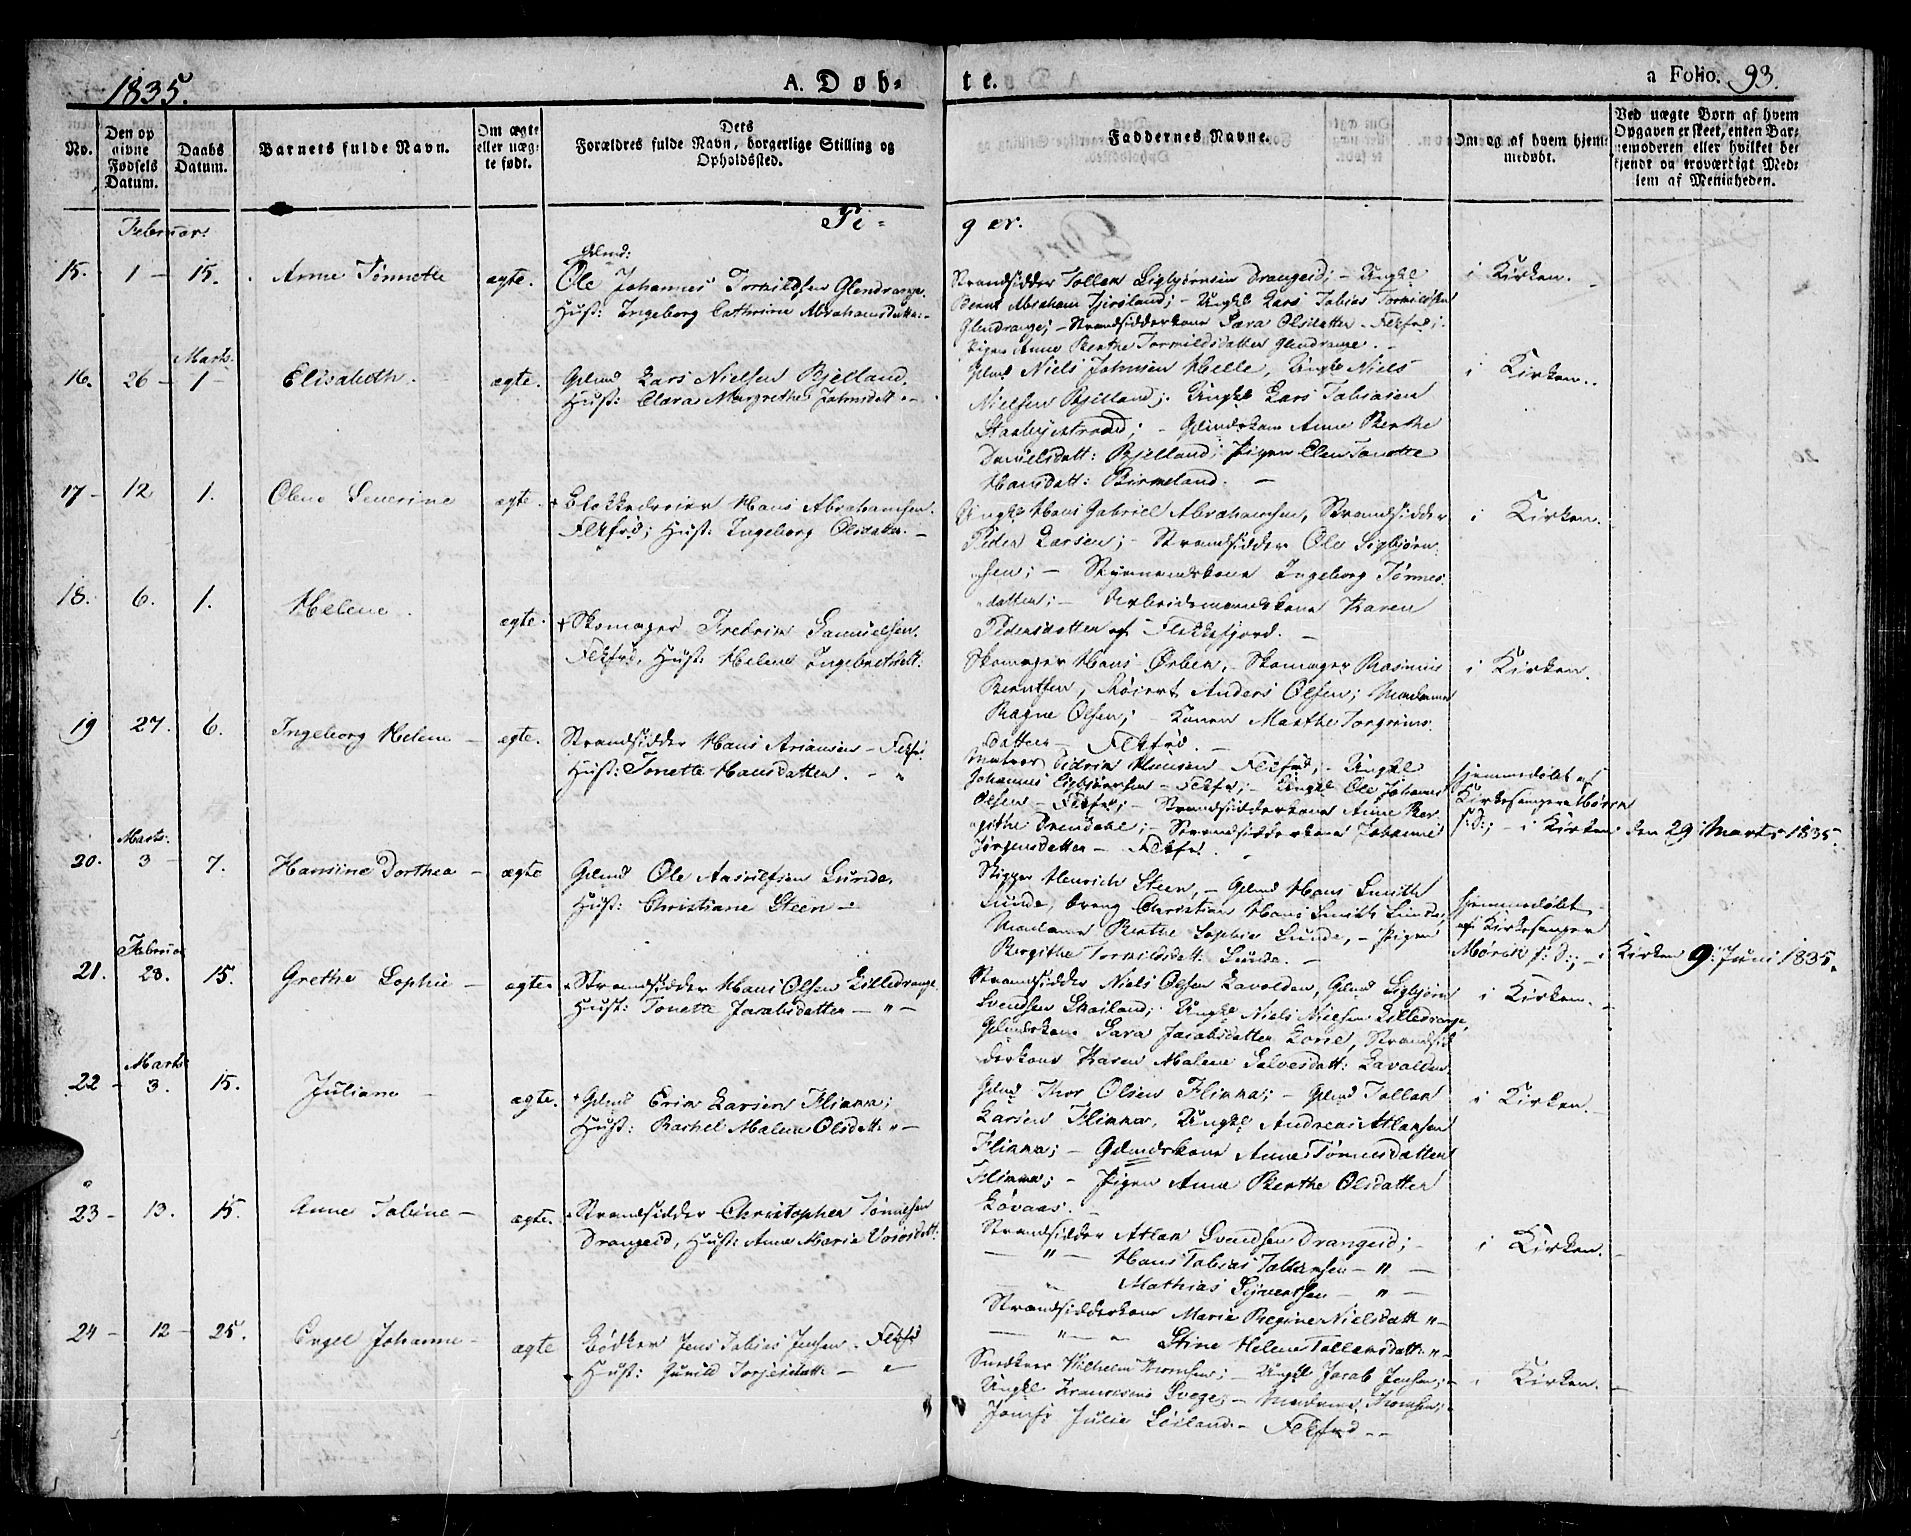 1835.
A. Døb-
te.
a Folio. 93.
No.
Den op
givne
Fødsels
Datum.
Daabs
Datum.
Barnets fulde Navn.
Om ægte
eller uæg-
te født.
Dets
Forældres fulde Navn, borgerlige Stilling og
Opholdssted.
Faddernes Navne.
Om og af hvem hjem-
medøbt.
Ved uægte Børn af hvem
Opgaven er skeet, enten Bar-
nemoderen eller hvilket be-
kjendt og troværdigt Med-
lem af Menigheden.
Pi-
ger.
Februar:
15. 1 — 15. Anne Tønnette ægte.
Gdmd:
Ole Johannes Torkildsen Glendrange.
Hust: Ingeborg Cathrine Abrahamsdatter.-
Strandsidder Tollak Sigbjørnsen Drangeid; - Ungkl
Bernt Abraham Fjersland; - Ungkl Lars Tobias Torkildsen
Glendrange; - Strandsidderkone Sara Olsdatter - Flkfrd;
Pigen Anne Berthe Torkildsdatter Glendrange. -
i Kirken.
Marts.
16. 26 — 1 — Elisabeth. ægte.
Gdmd Lars Nielsen Bjelland.
Hust: Clara Margrethe Johnsdatt: -
Gdmd Niels Johnsen Helle, Ungkl Niels
Nielsen Bjelland; Ungkl Lars Tobiasen
Stasbyestrand; - Gdmdskone Anne Berthe
Danielsdatt: Bjelland; Pigen Elen Tonette
Hansdatt: Birkeland. —
i Kirken.
17 — 12 1. Olene Severine ægte.
Blokkedreier Hans Abrahamsen.
Flkfrd; Hust: Ingeborg Olsdatter. —
Ungkl Hans Gabriel Abrahamsen, Strandsidder
Peder Larsen; - Strandsidder Ole Sigbjørn-
sen; - Styrmandskone Ingeborg Tønnes-
datter; - Arbeidsmandskone Karen
Pedersdatter af Flekkefjord. —
i Kirken.
18. 6. 1. Helene. ægte.
Skomager Fredrik Samuelsen.
Flkfrd, Hust: Helene Ingebrethsdtt:
Skomager Hans Ørbek, - Skomager Rasmus
Berntsen, Anders Olsen; Madame
Ragne Olsen; - Konen Marthe Torgrims-
datter — Flkfrd. —
i Kirken.
19 27. 6. Ingeborg Helene — ægte.
Strandsidder Hans Ariansen - Flkfrd
Hust: Tonette Hansdatter. - "
Matros Hansen - Flkfrd; - Ungkl
Johannes Sigbjørnsen - Flkfrd; - Ungkl Ole Johannes
Olsen - Flkfrd; - Strandsidderkone Anne Ber-
githe Drendahl; - Strandsidderkone Johanne
Jørgensdatter - Flkfrd.
hjemmedøbt af
Kirkesanger Mørch
s: D:; - i Kirken den 29 Marts 1835.
Marts.
20. 3 — 7. Hansine Dorthea — ægte
Gdmd Ole Aasulfsen Lunde,
Hust: Christiane Steen —
Skipper Henrich Steen, - Gdmd Hans Smith
Lunde, Dreng Christian Hans Smith Lunde,
Madame Berthe Sophie Lunde, - Pigen
Bergithe Torkildsdatt: Lunde. —
hjemmedøbt
af Kirkesanger
Mørch s: D:; — i Kirken 9: Juni 1835.
Februar
21. 23. 15. Grethe Sophie — ægte.
Strandsidder Hans Olsen Lilledrange.
Hust: Tonette Jacobsdatter — " —
Strandsidder Niels Olsen Lavolden, Gdmd Sigbjørn
Svendsen Skailand; Ungkl Niels Nielsen Lilledrange,
Gdmdskone Sara Jacobsdatter Loge, Strandsid-
derkone Karen Malene Salvesdatt: Lavolden.
i Kirken.
Marts
22 — 3. 15. Juliane — ægte.
Gdmd Erik Larsen Flikka;
Hust: Rachel Malene Olsdatt: " —
Gdmd Thor Olsen Flikka; - Gdmd Tollak
Larsen Flikka, Ungkl Andreas Atlaksen
Flikka; - Gdmdskone Anne Tønnesdatter
Flikka; - Pigen Anne Berthe Olsdatter
Løvaas. —
i Kirken. —
23 — 13. 15. Anne Tobine — ægte.
Strandsidder Christopher Tønnesen
Drangeid, Hust: Anne Marie
Strandsidder Atlak Svendsen Drangeid; —
— " — Hans Tobias Tollaksen — " —
— " Mathias Sigvertsen — " —
Strandsidderkone Marie Regine Nielsdatt: " —
— " — " Stine Helene Tollaksdatt: " —
i Kirken. —
24 — 12 — 25. Engel Johanne — ægte
Bødker Jens Tobias Jensen - Flkfrd
Hust: Gunild Torjesdatt: — "
Snedker Wilhelm Thomsen; - Ungkl Jacob Jensen; -
Ungkl Svege; - Madame Thomsen; -
Jomfr Julie Loiland. - Flkfrd --
i Kirken. —